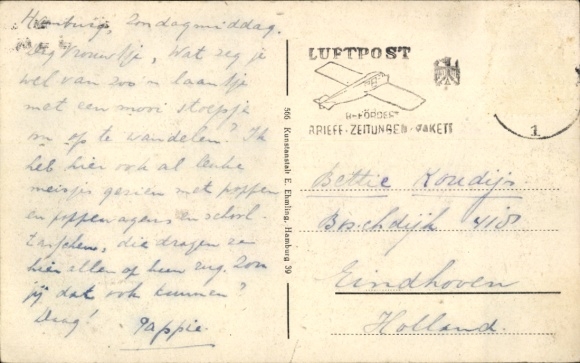 Hamburg, Zondagmiddag.
Dag Vrouwtje, Wat zeg je
wel van zoo'n laantje
met een mooi stoepje
om op te wandelen? Ik
heb hier ook al leuke
meisjes gezien met poppen
en poppenwagens en school-
taschen, die dragen ze
hier allen op hun rug. Zou
jij dat ook kunnen?
Daag! Pappie.
566 Kunstanstalt E. Ehmling, Hamburg 39
LUFTPOST
BEFÖRDERT
BRIEFE·ZEITUNGEN·PAKETE
1
Bettie Koudijs.
Boschdijk 418
Eindhoven
Holland.